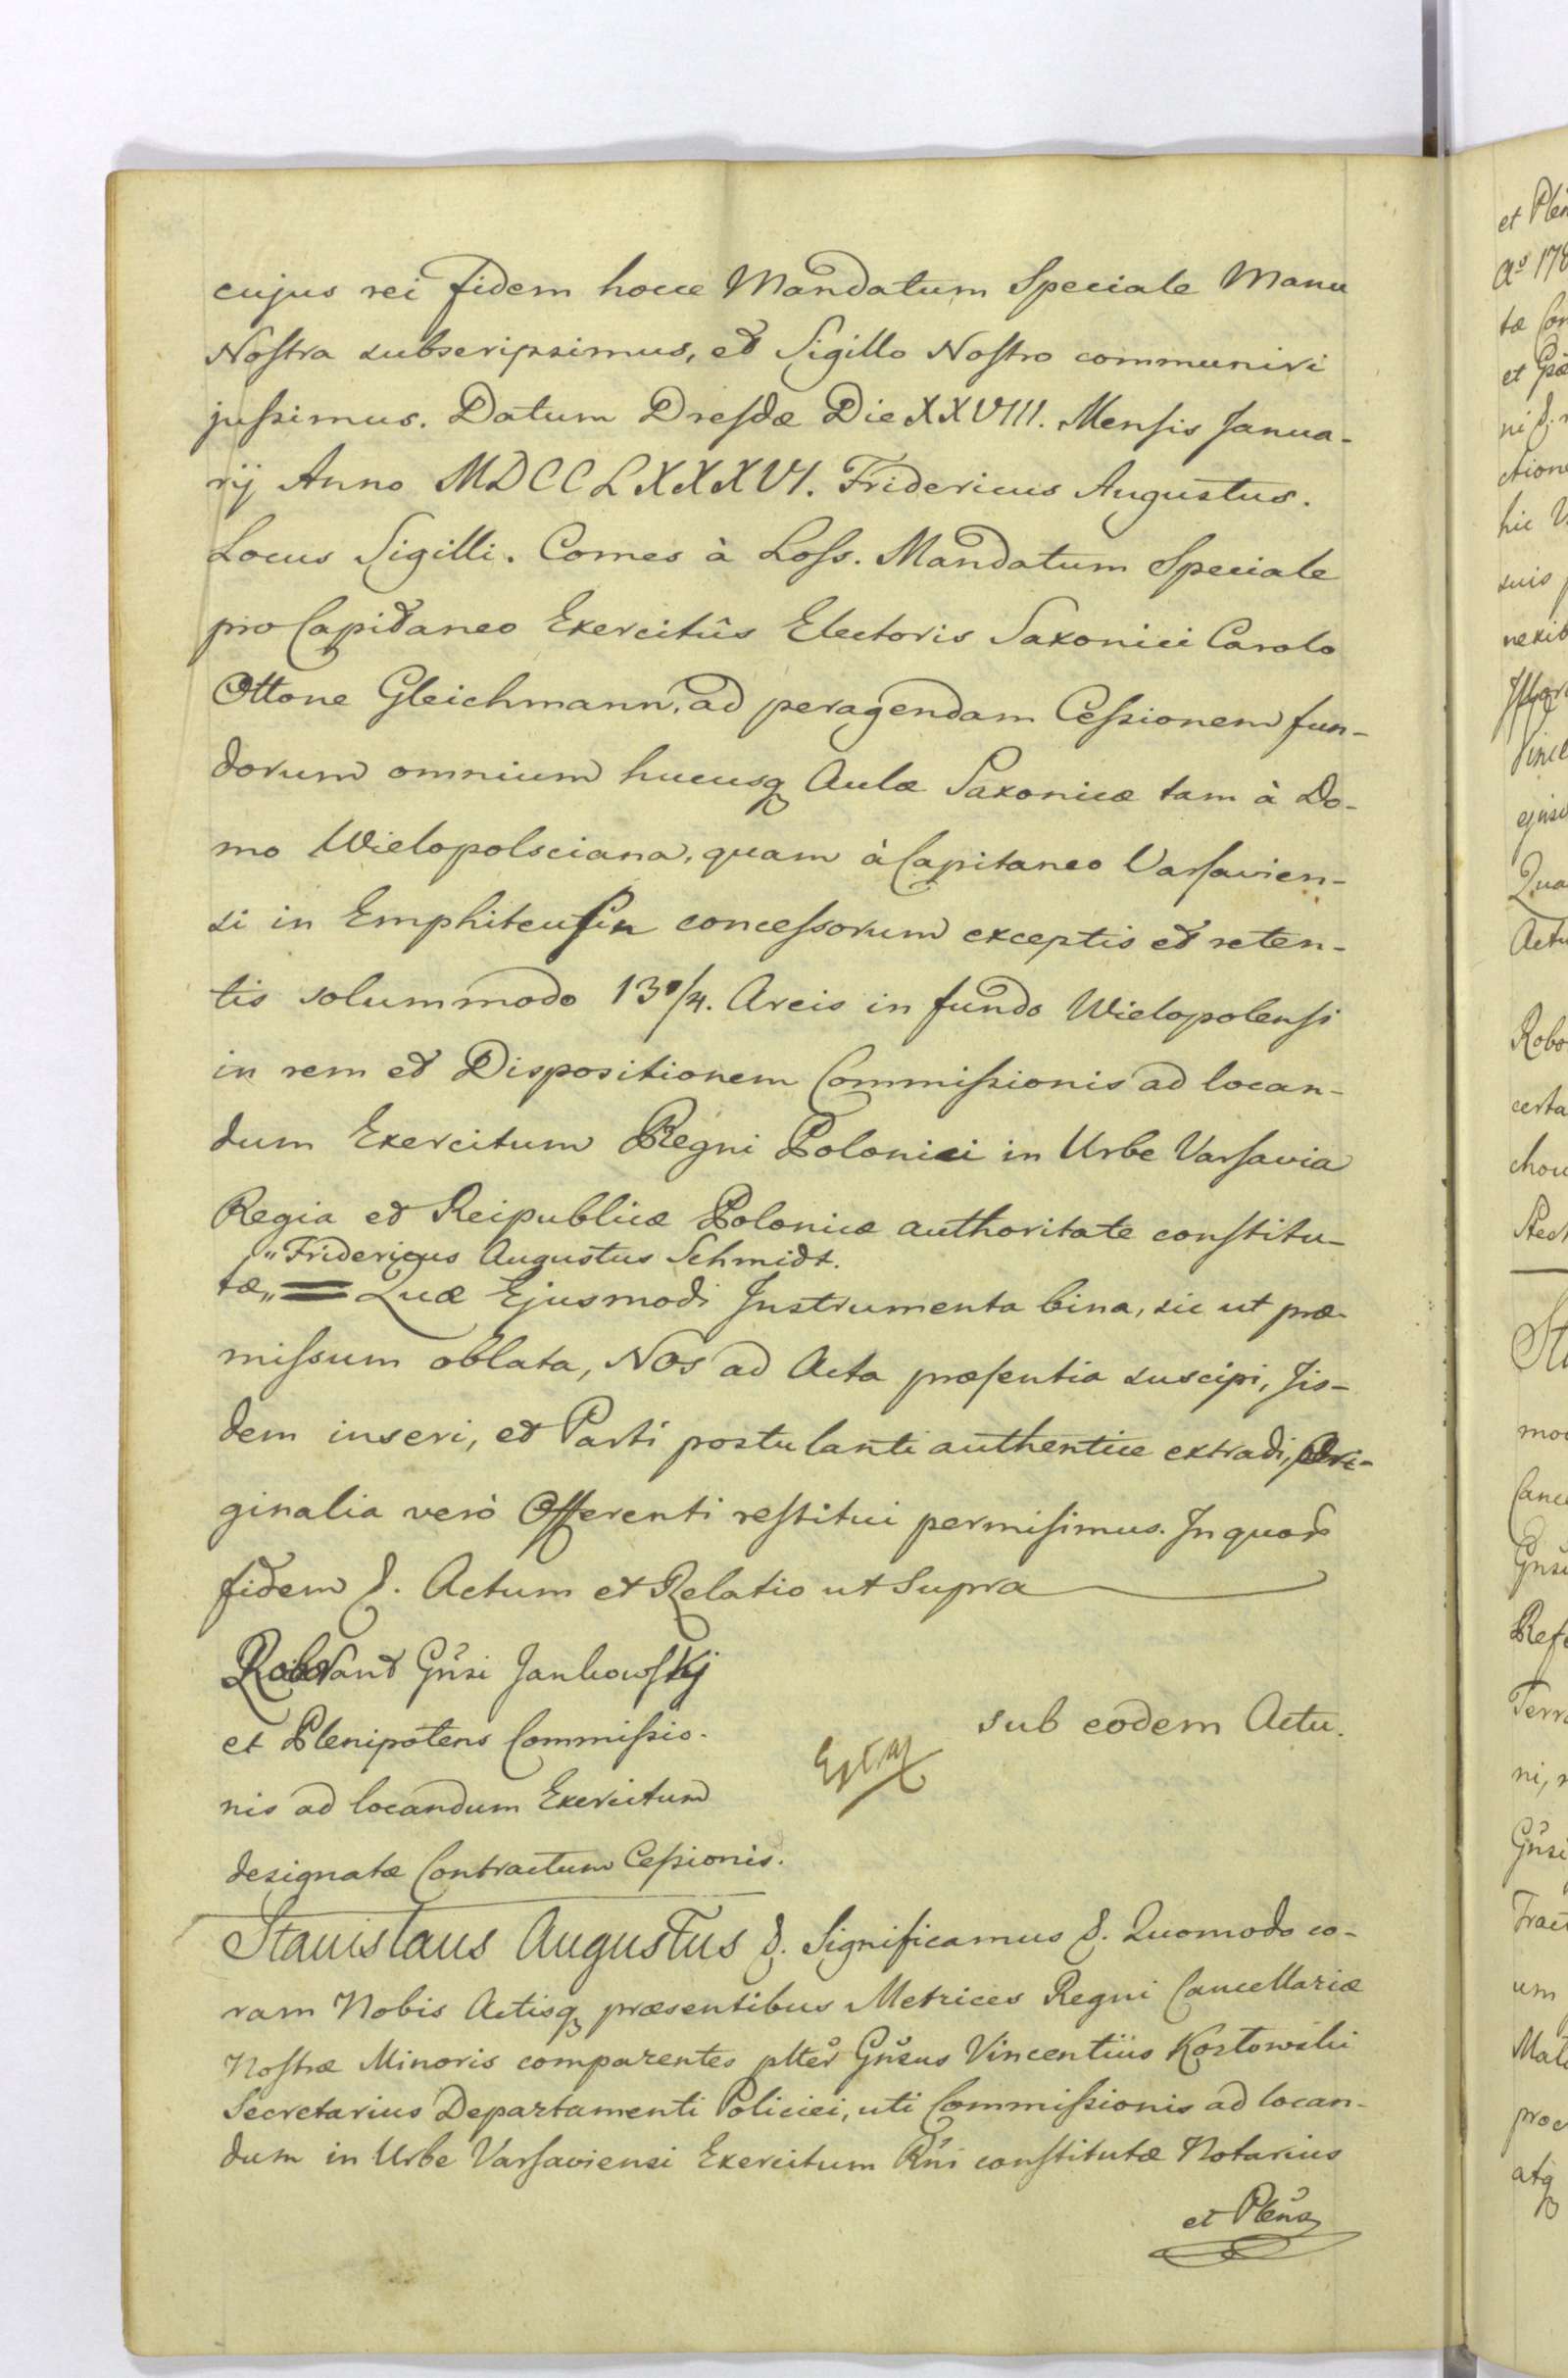 cujus rei fidem hocce Mandatum Speciale Manu
Nostra subscripsimus, et Sigillo Nostro communiri
jussimus. Datum Dresdæ Die XXVIII. Mensis Janua-
rij Anno MDCCLXXXVI. Fridericus Augustus.
Locus Sigilli. Comes à Loss. Mandatum Speciale
pro Capitaneo Exercitûs Electoris Saxonici Carolo
Ottone Gleichmann, ad peragendam Cessionem fun-
dorum omnium hucusq Aulæ Saxonicæ tam à Do-
mo Wielopolsciana, quam à Capitaneo Varsavien-
si in Emphiteusin concessorum exceptis et reten-
tis solummodo 13 /4. Areis in fundo Wielopolensi
in rem et Dispositionem Commissionis ad locan-
dum Exercitum Regni Polonici in Urbe Varsavia
Regia et Reipublicæ Polonicæ authoritate constitu-
„Fridericus Augustus Schmidt.
tæ„ = Quæ Ejusmodi Instrumenta bina, sic ut præ-
missum oblata, Nos ad Acta præsentia suscipi, Jis-
dem inseri, et Parti postulanti authentice extradi, Ori-
ginalia verò Offerenti restitui permisimus. In quor̃
fidem &. Actum et Relatio ut Supra
Roborant Gñsi Jankowskij
et Plenipotens Commissio-
nis ad locandum Exercitum
designatæ Contractum Cessionis.
sub eodem Actu.
Stanislaus Augustus &. Significamus &. Quomodo co-
ram Nobis Actisq præsentibus Metrices Regni Cancellariæ
Nostræ Minoris comparentes plter̃ Gñsus Vincentius Kozłowski
Secretarius Departamenti Policiei, uti Commissionis ad locan-
dum in Urbe Varsaviensi Exercitum Rñi constitutæ Notarius
et Pleñs
et Plen
Aº 178
tæ Con
ni &.
ction
hic V
suis
nexib
Vinc
ejusd
Qua
Actu
Robo
certa
chow
Sta
mod
Canc
Gñsi
Refe
Terra
ni,
Gñsi
Tract
um
Mat
proc
atq